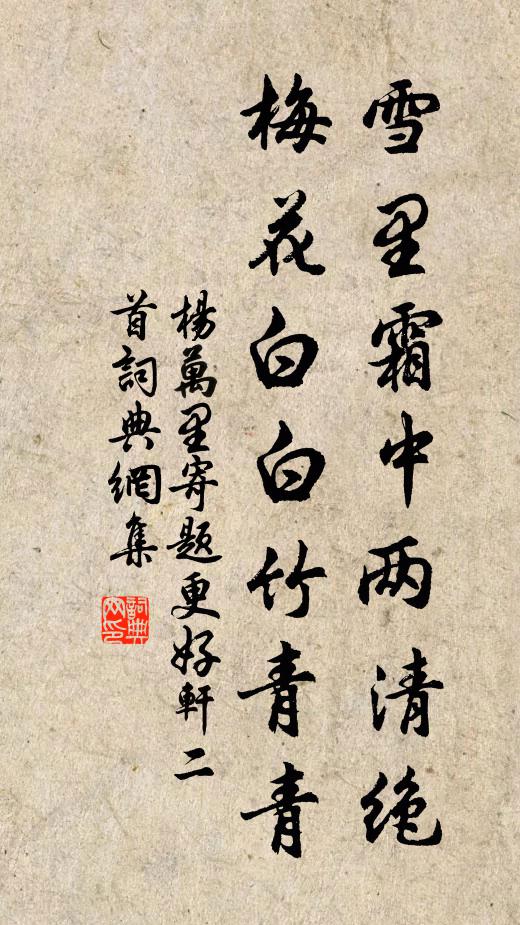 雪里霜中两清绝
梅花白白竹青青
楊萬里寄题更好軒二
首詞典網集
詞典
网印